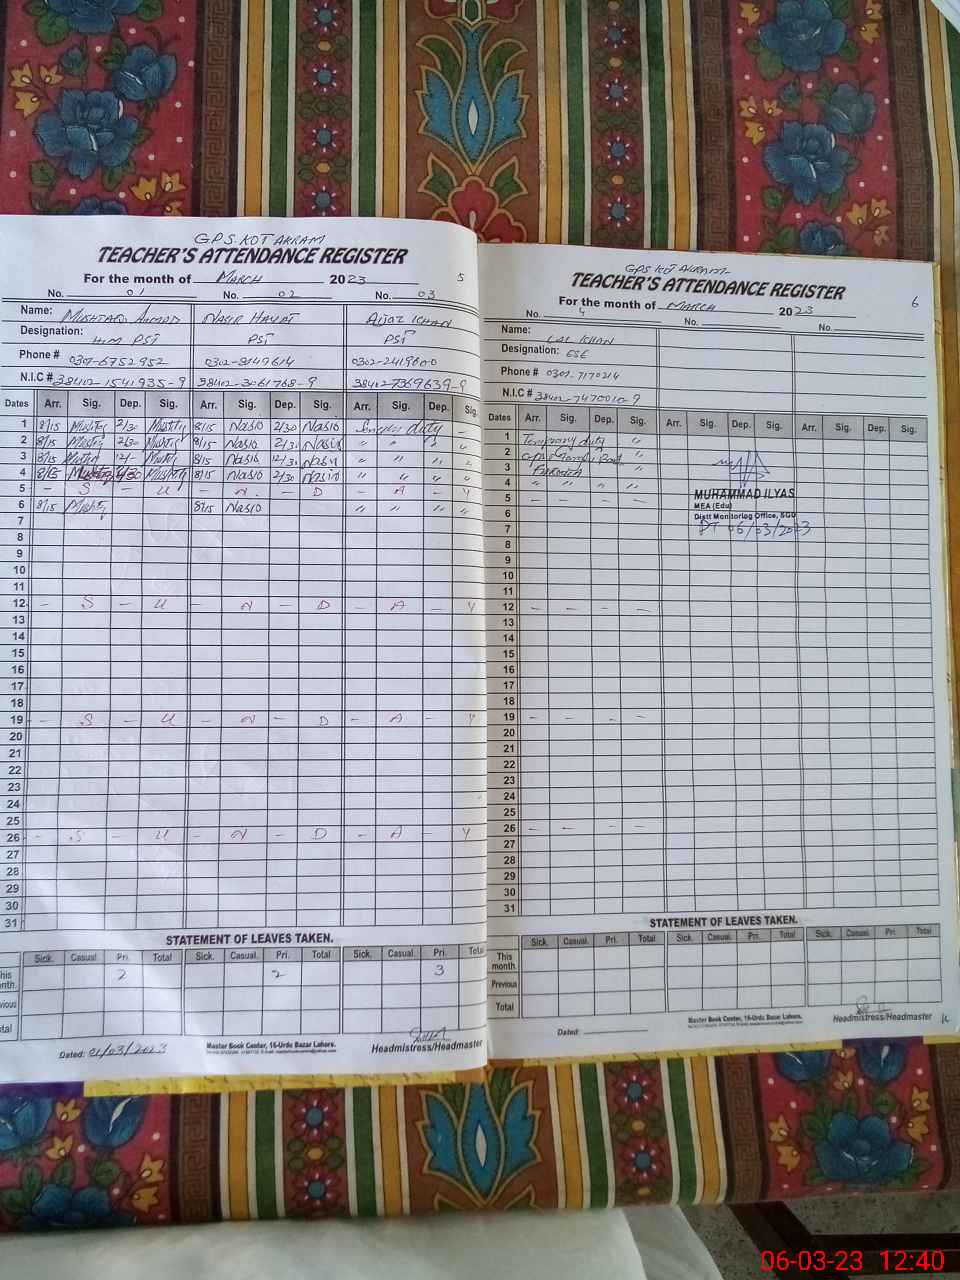 GPS. KOT AKRAM
TEACHER'S ATTENDANCE REGISTER
For the month of MARCH 2023
5
No. 01 No. 02 No. 03
Name: MUSHTAQ AHMAD NASIR HAYAT AIJAZ KHAN
Designation: H/M PST PST PST
Phone # 0307-6752952 0302-8149614 0302-2419600
N.I.C # 38402-1541935-9 38402-3061768-9 38402-7369639-9
Dates Arr. Sig. Dep. Sig. Arr. Sig. Dep. Sig. Arr. Sig. Dep. Sig.
1 8/15 2/30 8/15 Nasir 2/30 Nasir duty
2 8/15 2/30 8/15 Nasir 2/30 Nasir " " " "
3 8/15 12/- 8/15 Nasir 12/30 Nasir " " " "
4 8/15 2/30 8/15 Nasir 2/30 Nasir " " " "
5 - S - U - N - D - A - Y
6 8/15 8/15 Nasir " " " "
7
8
9
10
11
12 - S - U - N - D - A - Y
13
14
15
16
17
18
19 - S - U - N - D - A - Y
20
21
22
23
24
25
26 - S - U - N - D - A - Y
27
28
29
30
31
STATEMENT OF LEAVES TAKEN.
Sick. Casual. Pri. Total Sick. Casual. Pri. Total Sick. Casual. Pri. Total
This month. 2 2 3
Previous
Total
Dated: 01/03/2023
Master Book Center, 16-Urdu Bazar Lahore.
Headmistress/Headmaster
GPS KOT AKRAM
TEACHER'S ATTENDANCE REGISTER
For the month of MARCH 2023
6
No. 4 No. No.
Name: LAL KHAN
Designation: ESE
Phone # 0301-7170214
N.I.C # 38402-7470010-9
Dates Arr. Sig. Dep. Sig. Arr. Sig. Dep. Sig. Arr. Sig. Dep. Sig.
1 Temporary duty "
2 "
3 "
4 " " " "
5 - - - -
MUHAMMAD ILYAS
MEA (Edu)
6
Distt Monitoring Office, SGD
7
DT 06/03/2023
8
9
10
11
12 - - - -
13
14
15
16
17
18
19 - - - -
20
21
22
23
24
25
26 - - -
27
28
29
30
31
STATEMENT OF LEAVES TAKEN.
Sick. Casual. Pri. Total Sick. Casual. Pri. Total Sick. Casual. Pri. Total
This month
Previous
Total
Dated:
Master Book Center, 16-Urdu Bazar Lahore.
Headmistress/Headmaster
06-03-23 12:40